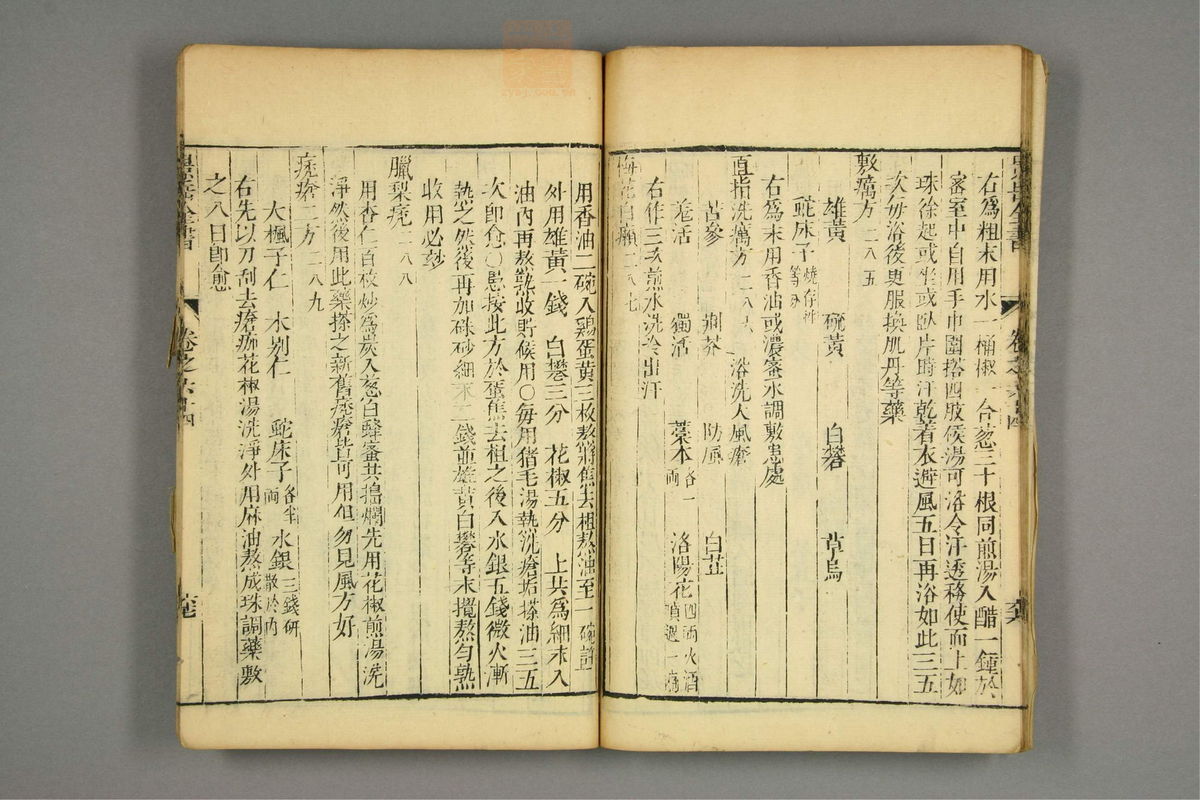 右為粗末用水一桶椒一合葱三十根同煎湯入醋一鍾於
密室中自用手巾圍搭四肢侯湯可浴令汗透務使面上如
珠徐起或坐或臥片時汗乾着衣避風五日再浴如此三五
次每浴後更服換肌丹等藥
敷癘方二八五
雄黃 硫黃 白礬 草烏
蛇床子燒存性等分
右為末用香油或濃蜜水調敷患處
直指洗癘方二八六 浴洗大風瘡
苦參 荆芥 防風 白芷
羌活 獨活 藁本各一兩 洛陽花四兩火酒
右作三次煎水洗令出汗
梅花白癩二八七
用香油二碗入鷄蛋黃三枚熬將焦去柤熬油至一碗許
外用雄黃一錢 白礬三分 花椒五分 上共為細末入
油內再熬熟收貯候用○每用猪毛湯熱洗瘡垢搽油三五
次即愈○愚按此方於蛋焦去柤之後入水銀五錢微火漸
熬之然後再加硃砂細末二錢並雄黃白礬等末攪熬勻熟
收用必妙
臘梨瘡二八八
用杏仁百枚炒為炭入葱白蜂蜜共搗爛先用花椒煎湯洗
淨然後用此藥搽之新舊瘡瘡皆可用但勿見風方好
瘡瘡二方二八九
大楓子仁 木鱉仁 蛇床子各半兩 水銀三錢研散於內
右先以刀刮去瘡痂花椒湯洗淨外用麻油熬成珠調藥敷
之八日即愈
景岳全書 卷之六十四